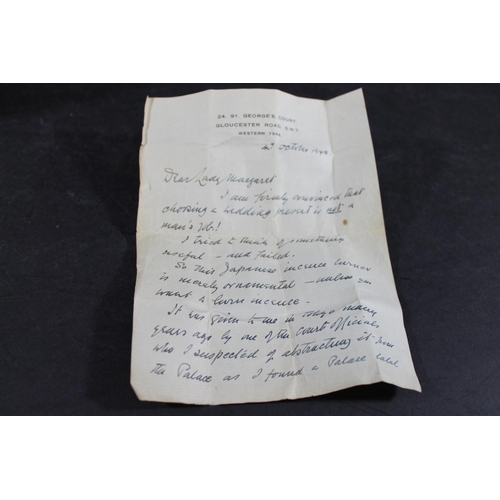 24, ST. GEORGE'S COURT,
GLOUCESTER ROAD, S.W.7.
WESTERN
October
Dear Lady Margaret
I am firmly convinced that
choosing a wedding present is not a
man's job!
I tried to think of something
useful – and failed.
So this Japanese incense burner
is merely ornamental – unless you
want to burn incense.
It was given to me in Tokyo many
years ago by one of the Court Officials
who I suspected of abstracting it from
the Palace as I found a Palace label